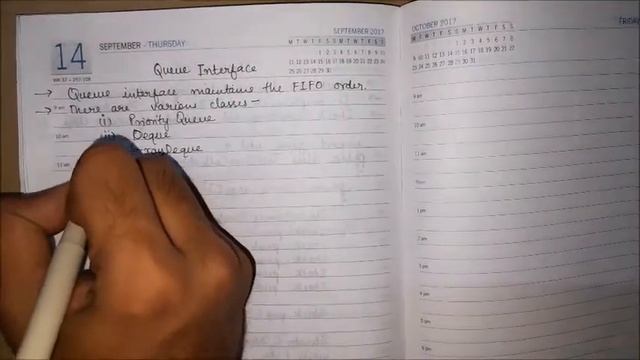 14
SEPTEMBER - THURSDAY
SEPTEMBER 2017
M T W T F S S M T W T F S S M T W T F S S
1 2 3 4 5 6 7 8 9 10
11 12 13 14 15 16 17 18 19 20 21 22 23 24
25 26 27 28 29 30
Queue Interface
→ Queue interface maintains the FIFO order.
→ There are various classes -
(i) Priority Queue
Deque
Deque
9 am
10 am
11 am
OCTOBER 2017
M T W T F S S M T W T F S S M T W T F S S
1 2 3 4 5 6 7 8
9 10 11 12 13 14 15 16 17 18 19 20 21 22
23 24 25 26 27 28 29 30 31
9 am
10 am
11 am
1 pm
2 pm
3 pm
4 pm
5 pm
6 pm